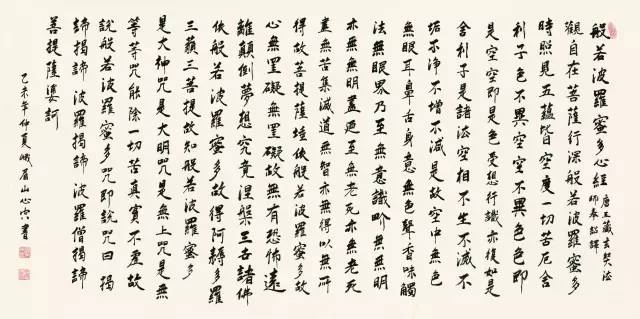 般若波羅蜜多心經 唐三藏玄奘法
師奉詔譯
觀自在菩薩行深般若波羅蜜多
時照見五蘊皆空度一切苦厄舍
利子色不異空空不異色色即
是空空即是色受想行識亦復如是
舍利子是諸法空相不生不滅不
垢不淨不增不減是故空中無色
無眼耳鼻舌身意無色聲香味觸
法無眼界乃至無意識界無無明
亦無無明盡乃至無老死亦無老死
盡無苦集滅道無智亦無得以無所
得故菩提薩埵依般若波羅蜜多故
心無罣礙無罣礙故無有恐怖遠
離顛倒夢想究竟涅槃三世諸佛
依般若波羅蜜多故得阿耨多羅
三藐三菩提故知般若波羅蜜多
是大神咒是大明咒是無上咒是無
等等咒能除一切苦真實不虛故
說般若波羅蜜多咒即說咒曰 揭
諦揭諦 波羅揭諦 波羅僧揭諦
菩提薩婆訶
乙未年仲夏峨眉山心空書